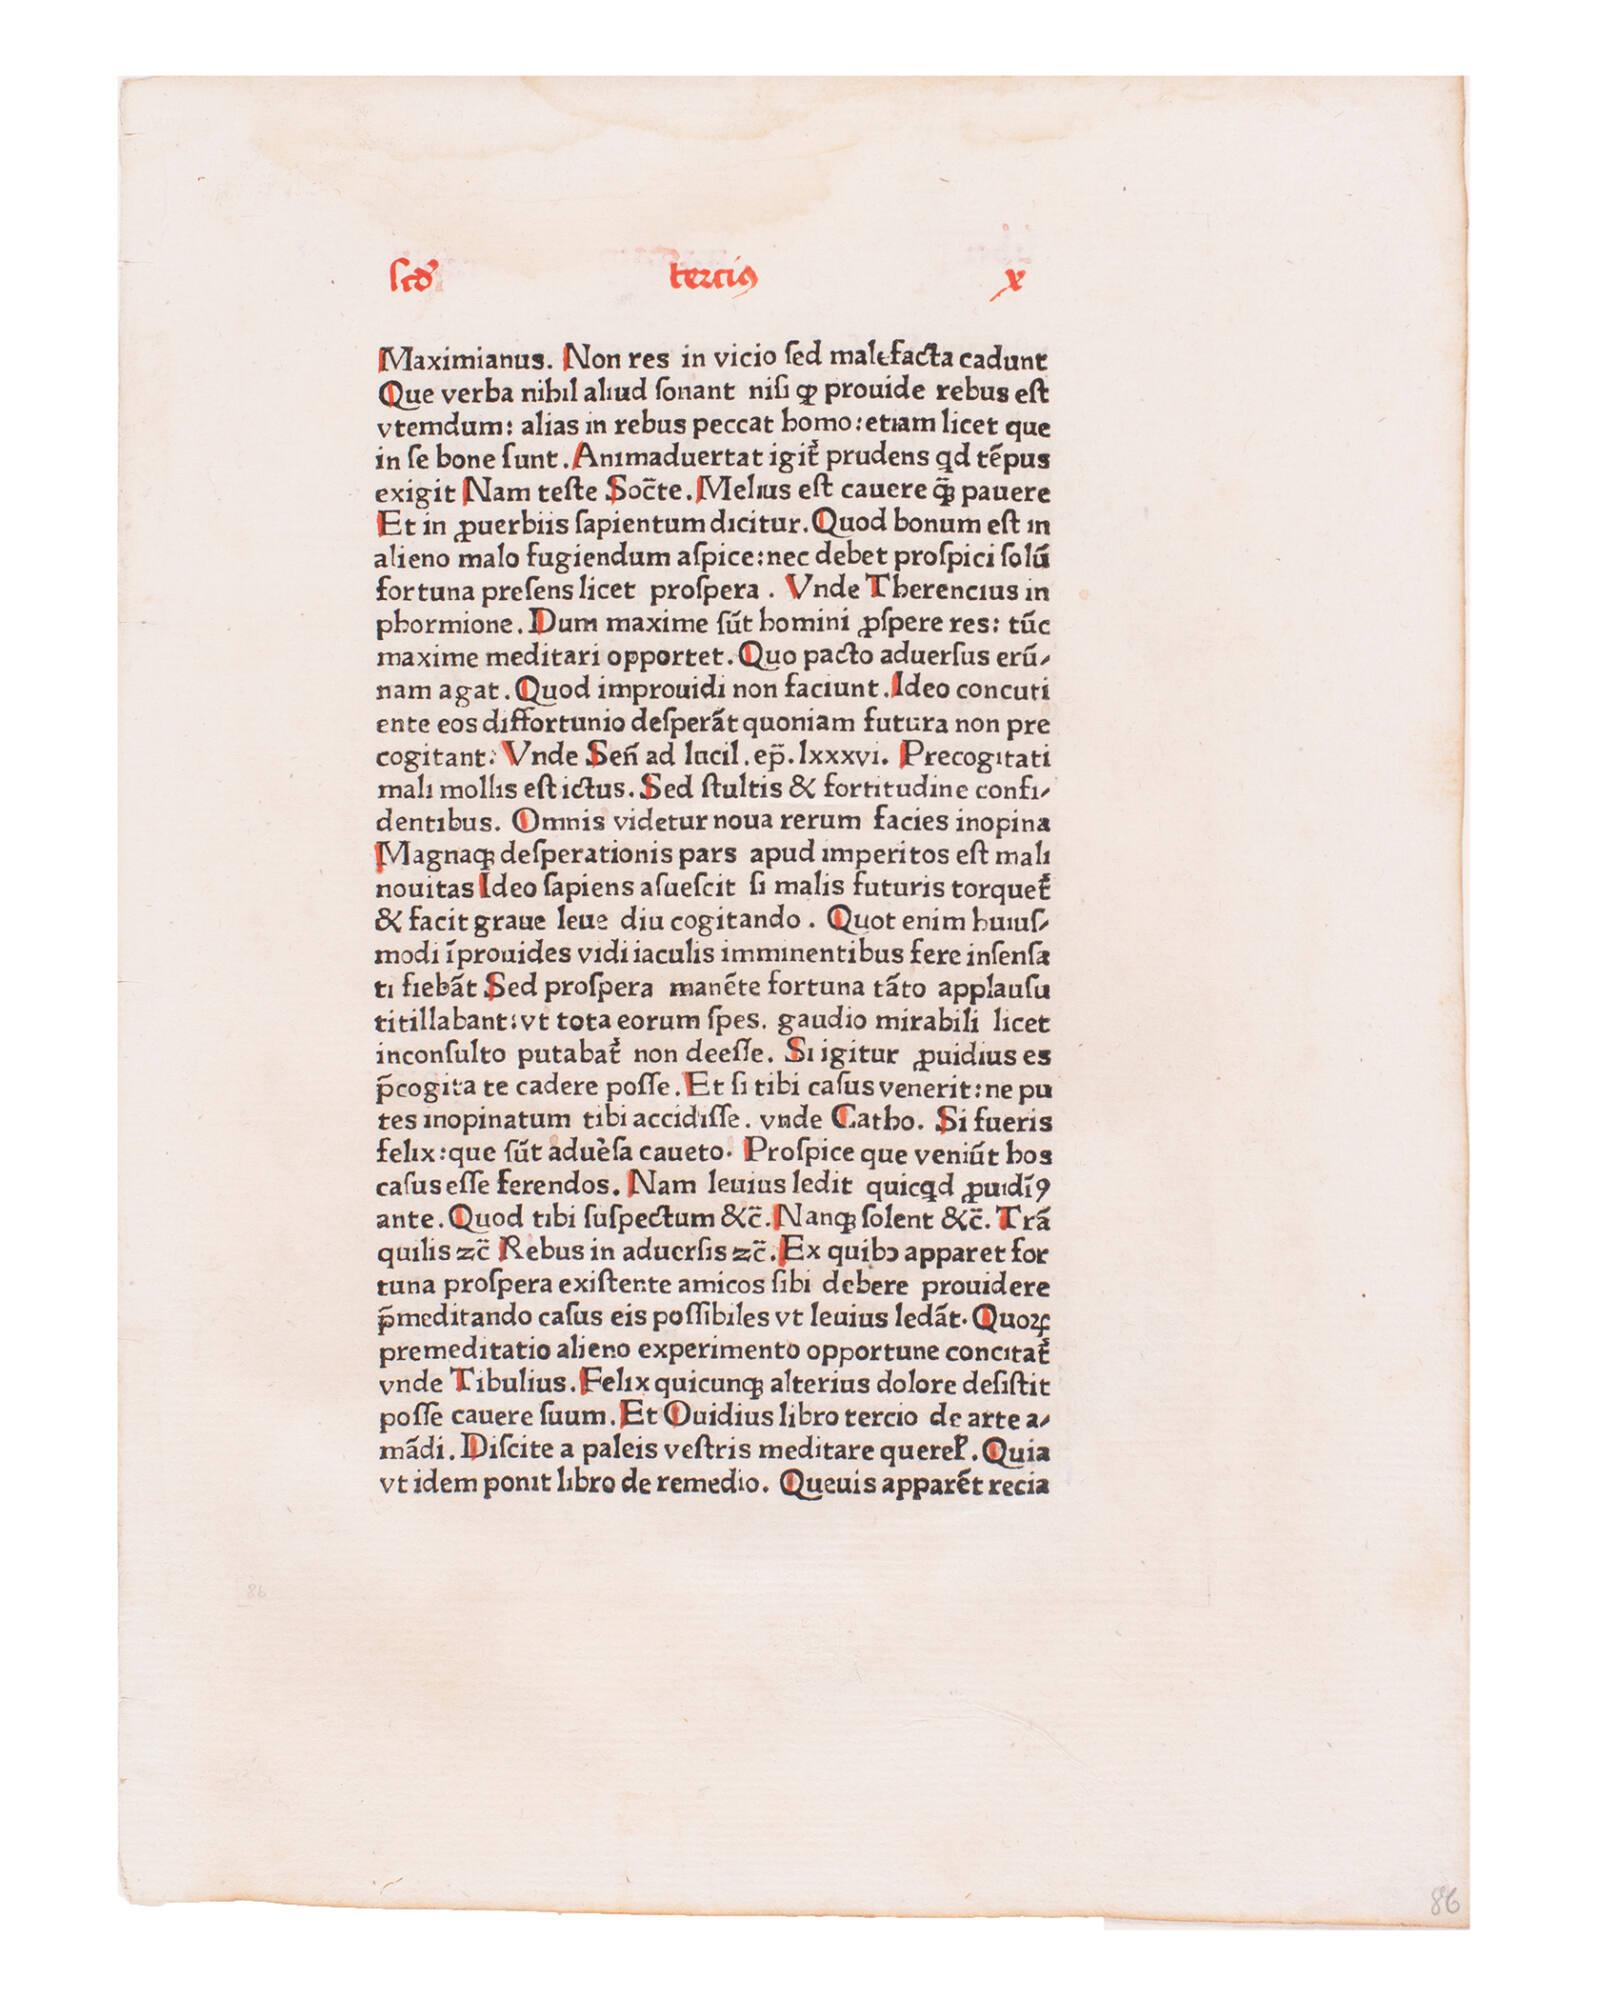 scdꝰ tercius x
Maximianus. Non res in vicio ſed malefacta cadunt
Que verba nihil aliud ſonant niſi ꝙ prouide rebus eſt
vtemdum: alias in rebus peccat homo: etiam licet que
in ſe bone ſunt. Animaduertat igit᷑ prudens qd tēpus
exigit Nam teſte Soc̄te. Melius eſt cauere q̄ꝫ pauere
Et in ꝓuerbiis ſapientum dicitur. Quod bonum eſt in
alieno malo fugiendum aſpice: nec debet proſpici ſolū
fortuna preſens licet proſpera. Vnde Therencius in
phormione. Dum maxime ſūt homini ꝓſpere res: tūc
maxime meditari opportet. Quo pacto aduerſus erū⸗
nam agat. Quod improuidi non faciunt. Ideo concuti
ente eos diffortunio deſperāt quoniam futura non pre
cogitant: Vnde Señ ad lucil. ep̄. lxxxvi. Precogitati
mali mollis eſt ictus. Sed ſtultis & fortitudine confi⸗
dentibus. Omnis videtur noua rerum facies inopina
Magnaqꝫ deſperationis pars apud imperitos eſt mali
nouitas Ideo ſapiens aſueſcit ſi malis futuris torquet᷑
& facit graue leue diu cogitando. Quot enim huiuſ⸗
modi īprouides vidi iaculis imminentibus fere inſenſa
ti fiebāt Sed proſpera manēte fortuna tāto applauſu
titillabant: vt tota eorum ſpes. gaudio mirabili licet
inconſulto putabat᷑ non deeſſe. Si igitur ꝓuidius es
p̄cogita te cadere poſſe. Et ſi tibi caſus venerit: ne pu
tes inopinatum tibi accidiſſe. vnde Catho. Si fueris
felix: que ſūt aduèſa caueto. Proſpice que veniūt hos
caſus eſſe ferendos. Nam leuius ledit quicqd ꝓuidīꝰ
ante. Quod tibi ſuſpectum &c̄. Nanqꝫ ſolent &c̄. Trā
quilis ⁊c̄ Rebus in aduerſis ⁊c̄. Ex quibꝰ apparet for
tuna proſpera exiſtente amicos ſibi debere prouidere
p̄meditando caſus eis poſſibiles vt leuius ledāt. Quoꝝ
premeditatio alieno experimento opportune concitat᷑
vnde Tibulius. Felix quicunqꝫ alterius dolore deſiſtit
poſſe cauere ſuum. Et Ouidius libro tercio de arte a⸗
mādi. Diſcite a paleis veſtris meditare quereł. Quia
vt idem ponit libro de remedio. Queuis apparēt recia
86
86